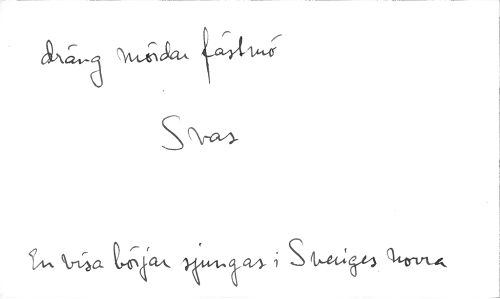 dräng mördar fästmö
Svas
En visa börjar sjungas i Sveriges norra